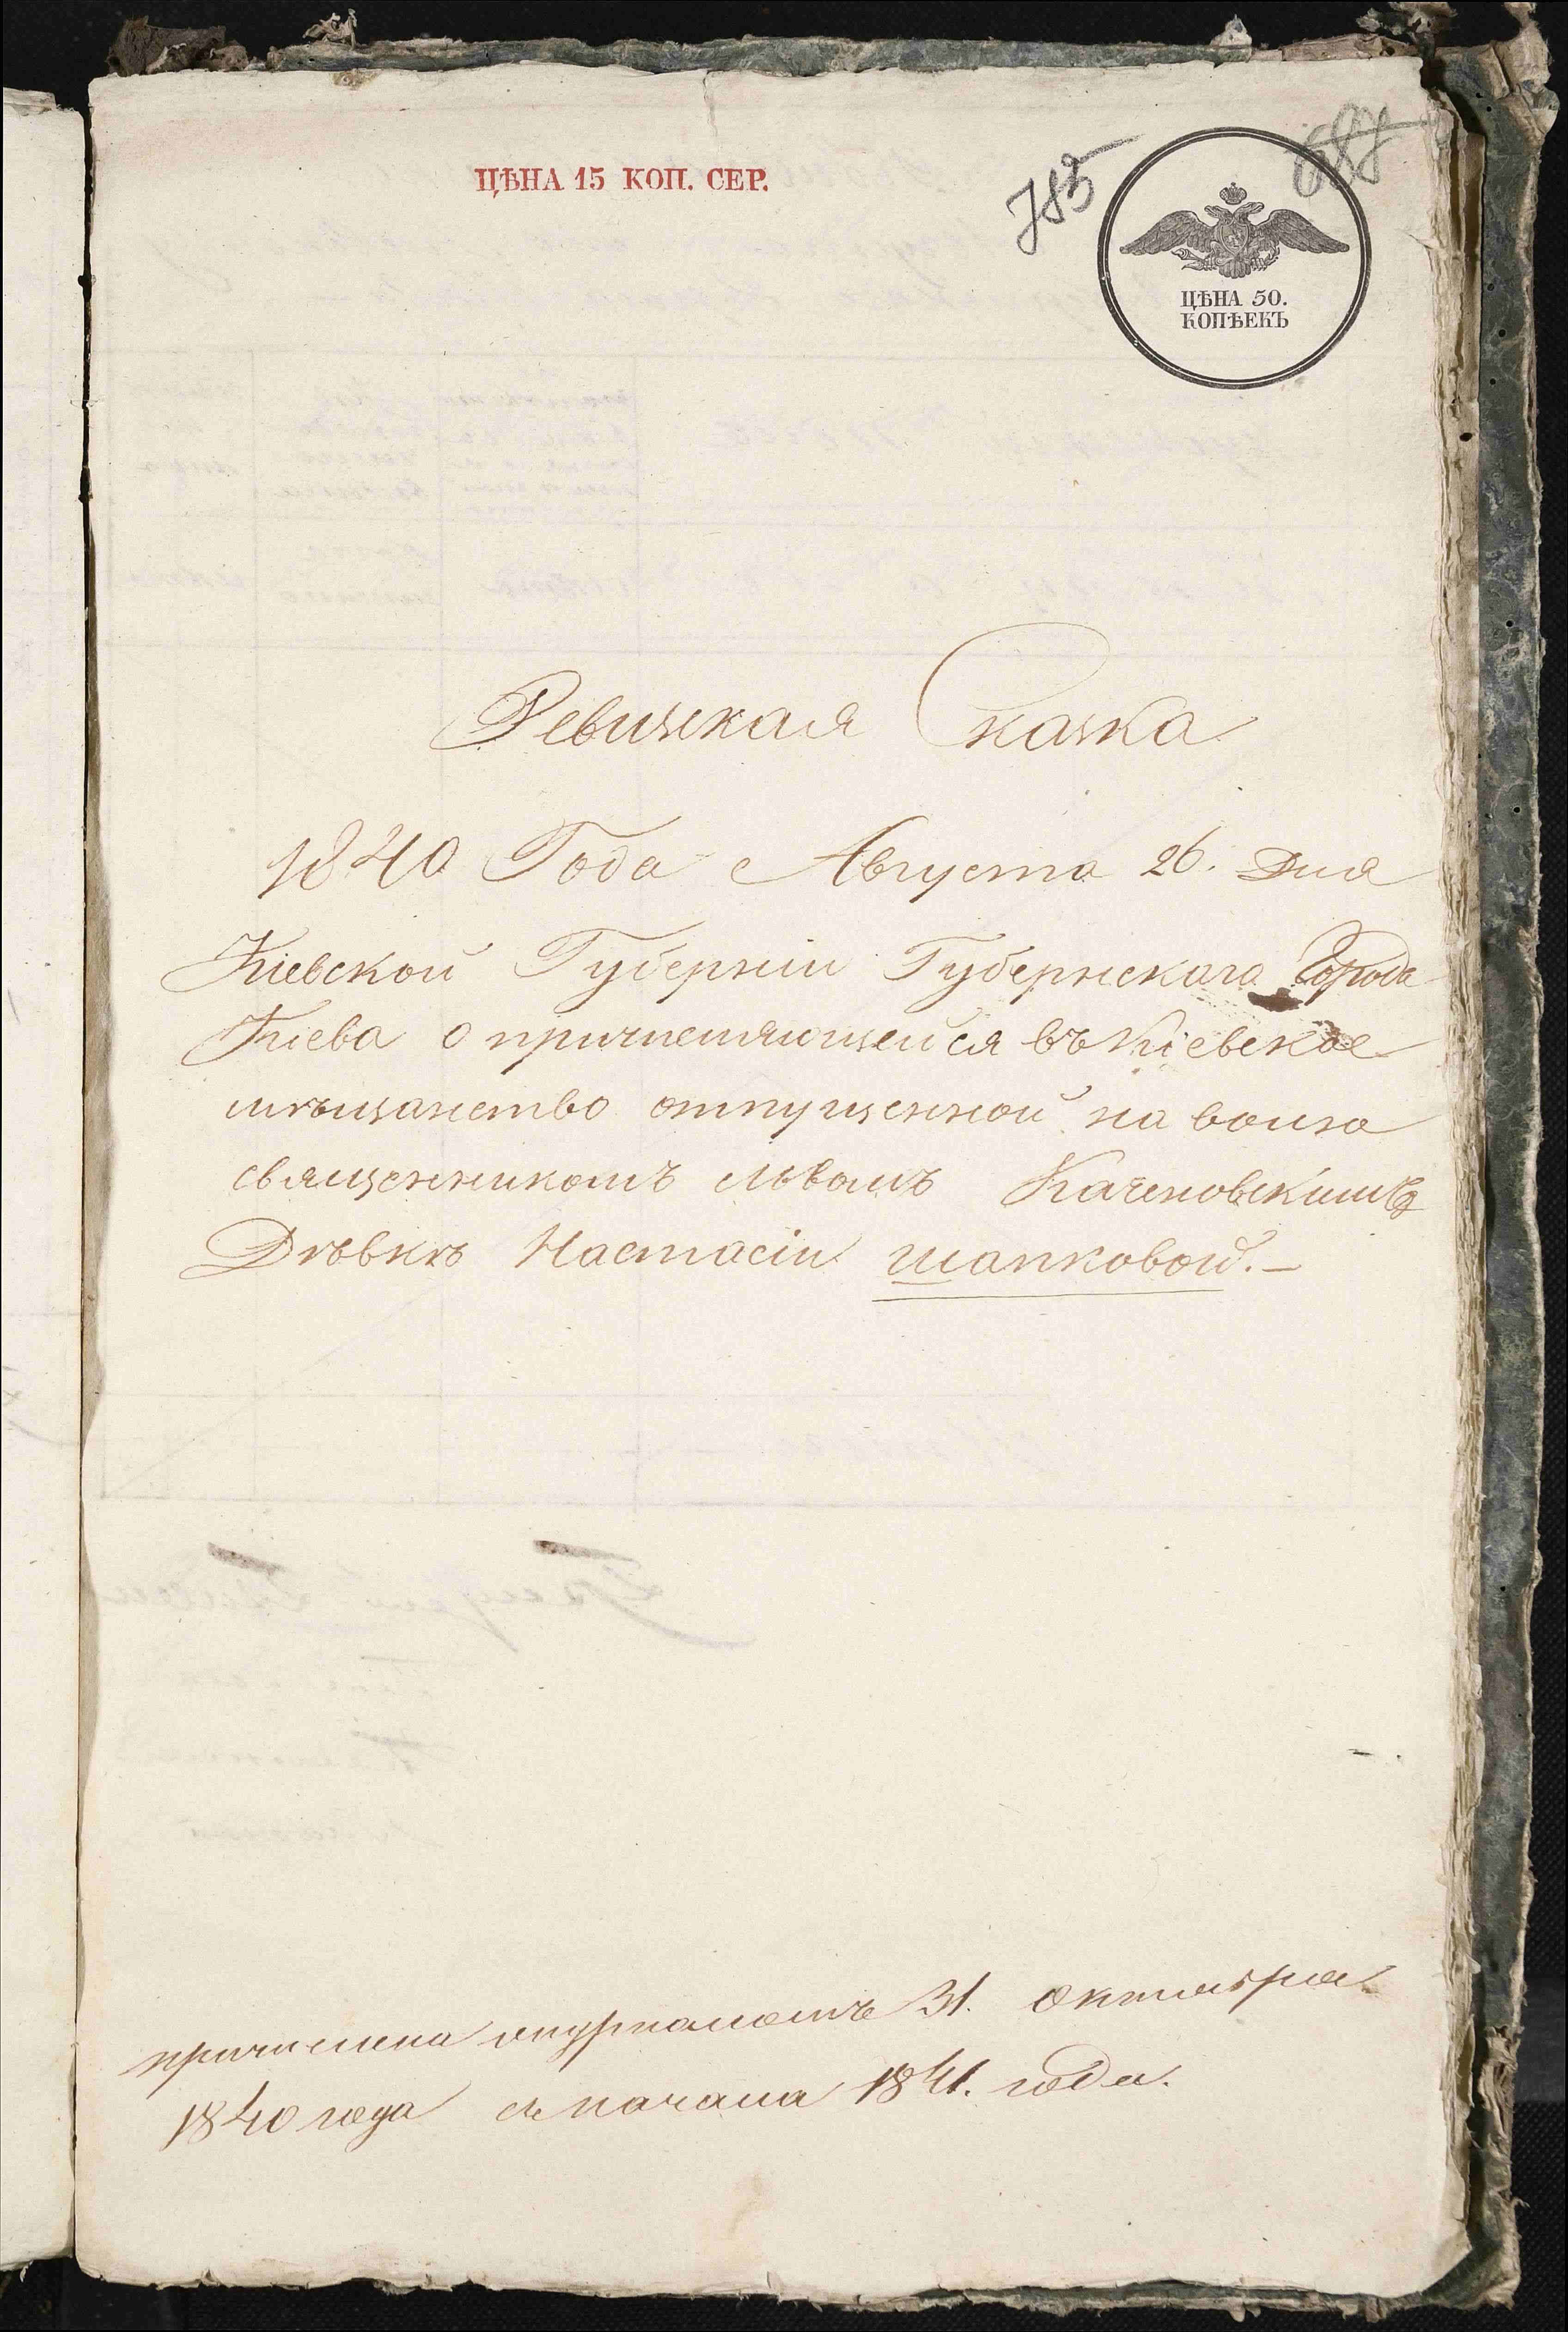 ЦѢНА 15 КОП. СЕР.
785
688
ЦѢНА 50.
КОПѢЕКЪ
Ревизская Сказка
1840 Года Августа 26. Дня
Кіевской Губерніи Губернскаго Города
Кіева о причисляющейся въ Кіевское
мѣщанство отпущенной на волю
священникомъ Львомъ Каченовскимъ
Дѣвкѣ Настасіи Шапковой.–
причислена журналомъ 31. Октября
1840 года съ начала 1841. года.